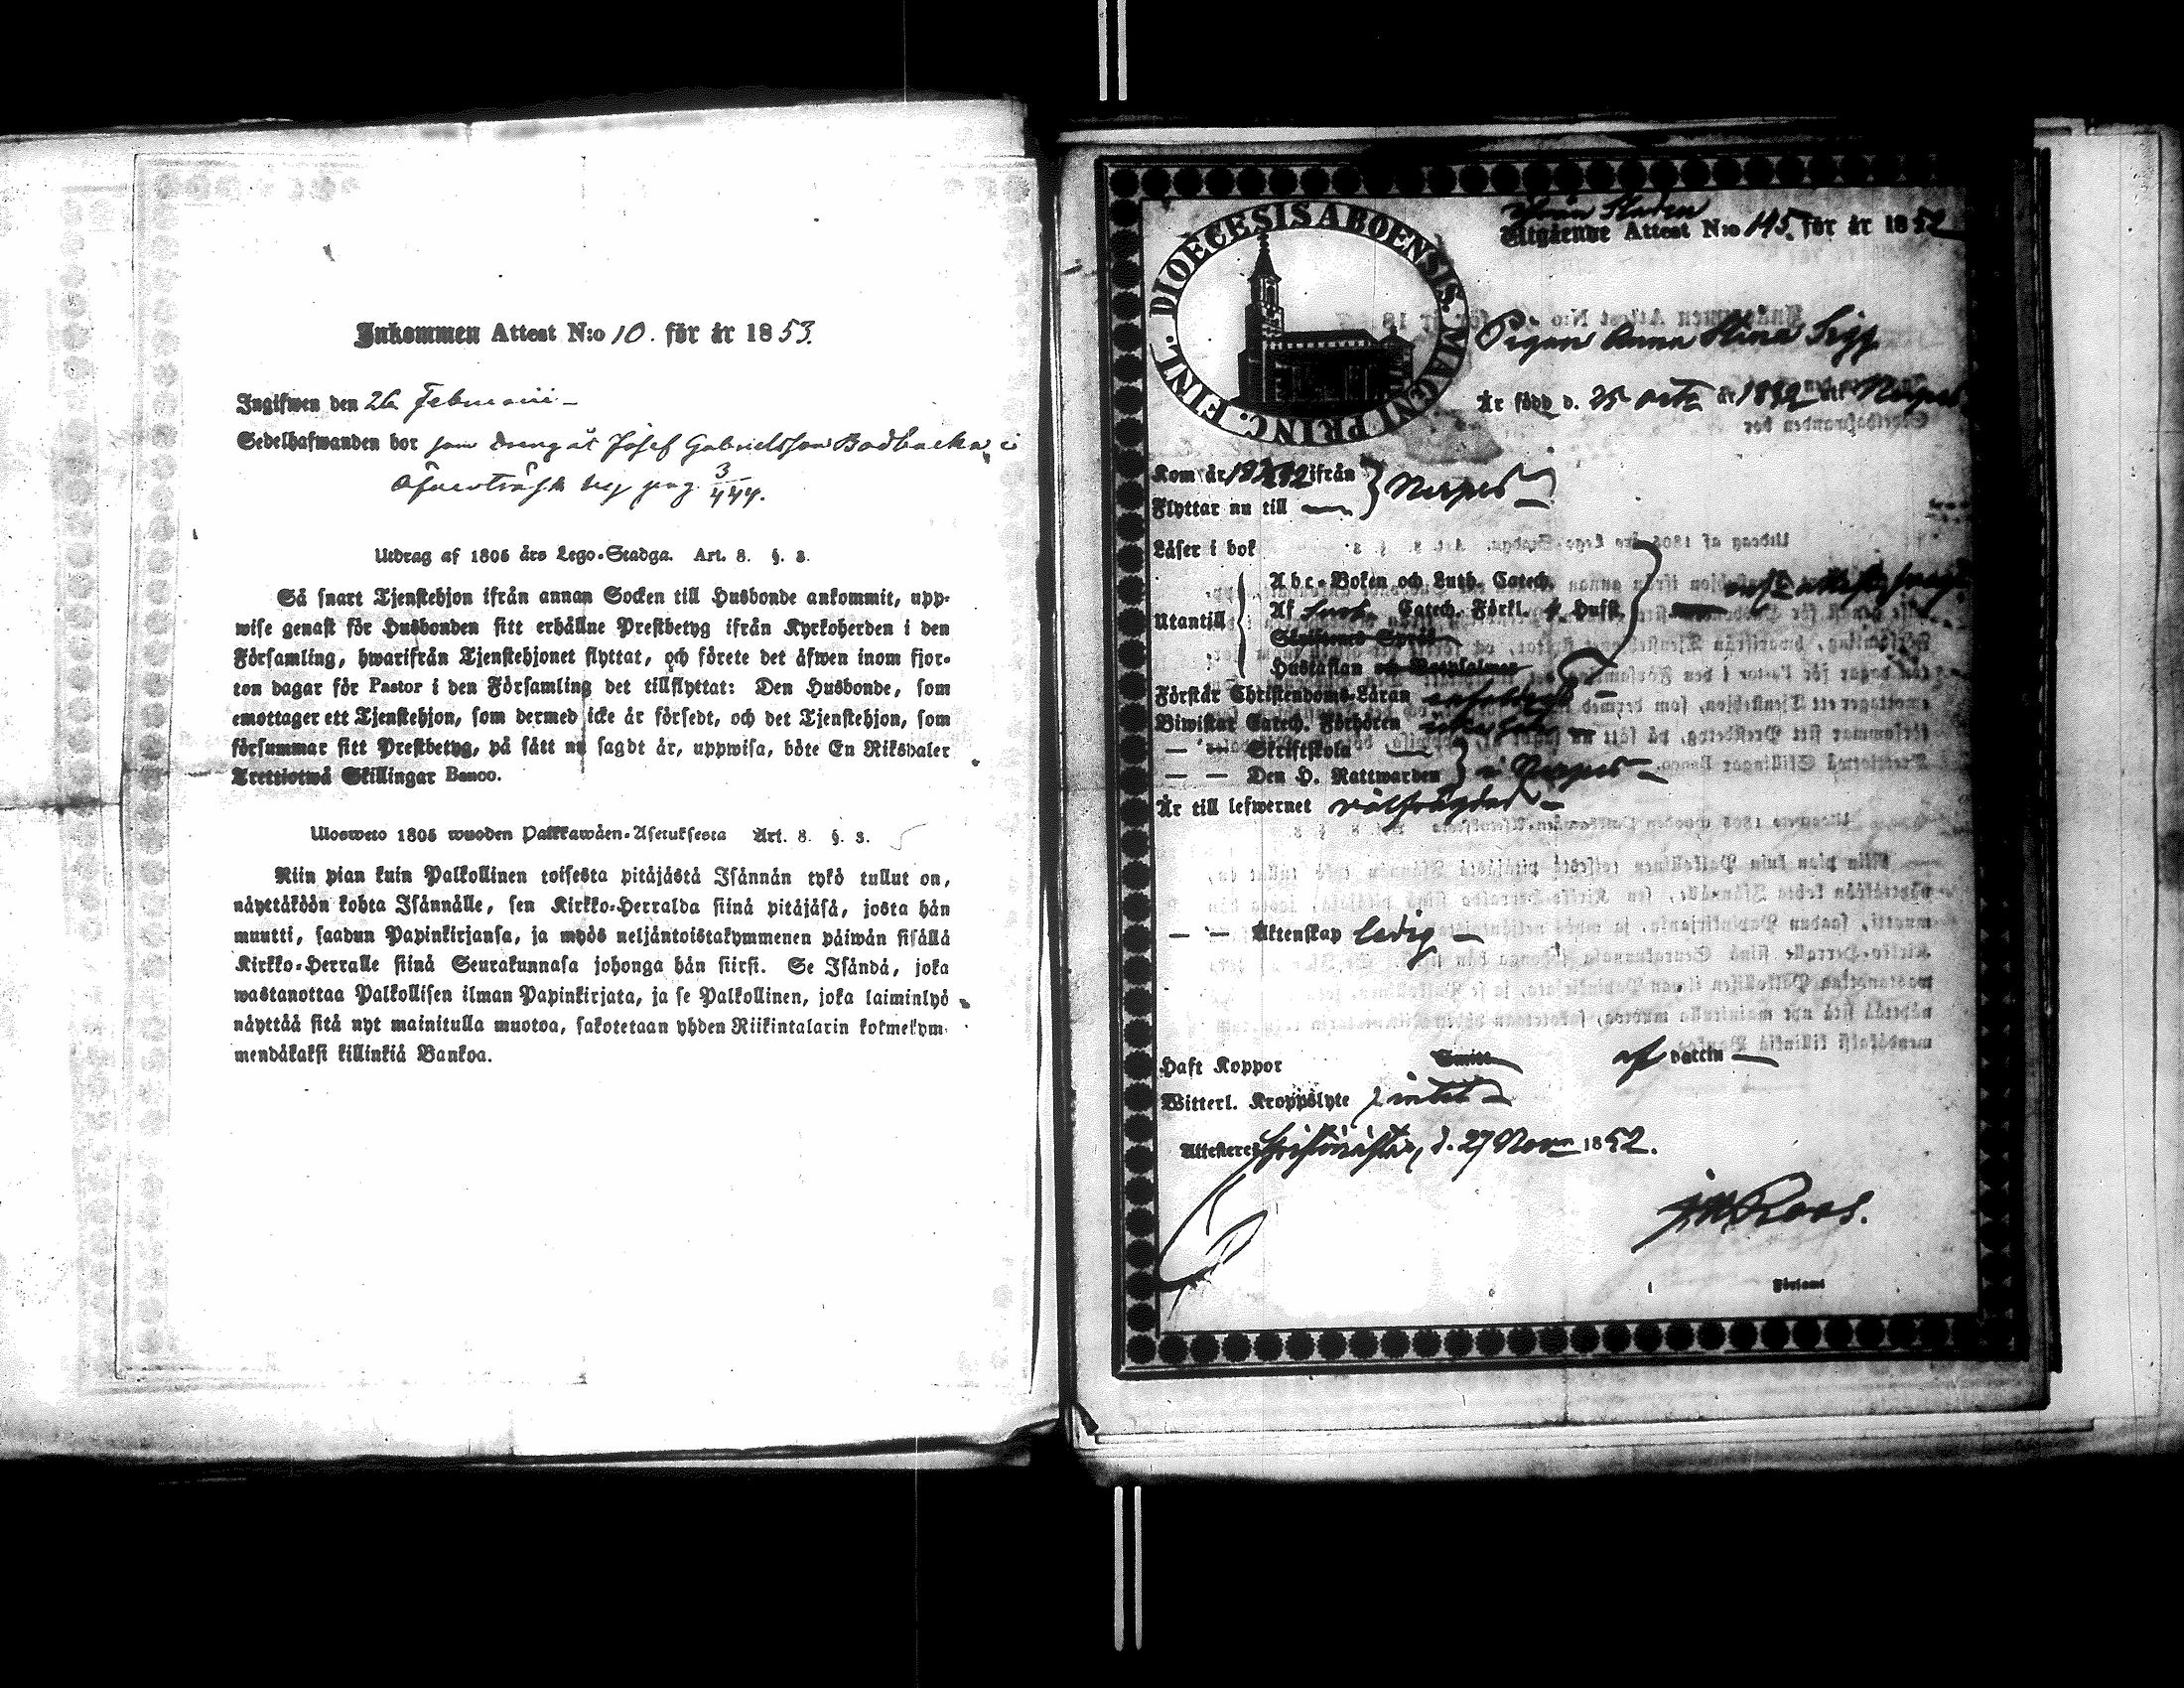 Inkommen Attest N:o 10. för år 1853.
Ingifwen den 26 Februarii
Sedelhafwanden bor som dräng åt Josef Gabrielsson Badbacka i
Öfverträsk pag. 3/444.
Utdrag af 1805 års Lego-Stadga. Art. 8. §. 3.
Så snart Tjenstehjon ifrån annan Socken till Husbonde ankommit, upp-
wise genast för Husbonden sitt erhållne Prestbetyg ifrån Kyrkoherden i den
Församling, hwarifrån Tjenstehjonet flyttat, och förete det äfwen inom fjor-
ton dagar för Pastor i den Församling det tillflyttat: Den Husbonde, som
emottager ett Tjenstehjon, som dermed icke är försedt, och det Tjenstehjon, som
försummar sitt Prestbetyg, på sätt nu sagdt är, uppwisa, böte En Riksdaler
Trettiotwå Skillingar Banco.
Ulosweto 1805 wuoden Palkkawäen-Asetuksesta Art. 8. §. 3.
Niin pian kuin Palkollinen toisesta pitäjästä Isännän tykö tullut on,
näyttäköön kohta Isännälle, sen Kirkko-Herralda siinä pitäjäsä, josta hän
muutti, saadun Papinkirjansa, ja myös neljäntoistakymmenen päiwän sisällä
Kirkko-Herralle siinä Seurakunnasa johonga hän siirsi. Se Isändä, joka
wastanottaa Palkollisen ilman Papinkirjata, ja se Palkollinen, joka laiminlyö
näyttää sitä nyt mainitulla muotoa, sakotetaan yhden Riikintalarin kolmekym-
mendäkaksi killinkiä Bankoa.
DIOECESIS ABOENSIS. MAGNI PRINC. FINL.
från Staden
Utgående Attest N:o 145. för år 1852
Pigan Anna Stina Sigg
Är född d. 25 Octr år 1832 i Nerpes
Kom år ifrån
Flyttar nu till } Nerpes
Läser i bok
Utantill
Abc-Boken och Luth. Catech.
Af Catech. Förkl. Hufst.
Skriftenes Språk
Hustaflan och Botpsalmer
Förstår Christendoms-Läran
Biwistar Catech. Förhören
— — Skriftskola
— — Den H. Nattwarden } i Nerpes
Är till lefwernet välfrägdad
— — Äktenskap ledig
Haft Koppor Smitt af vaccin
Witterl. Kroppslyte intet
Attesterer Christinestad, d. 27 Novr 1852.
Roos.